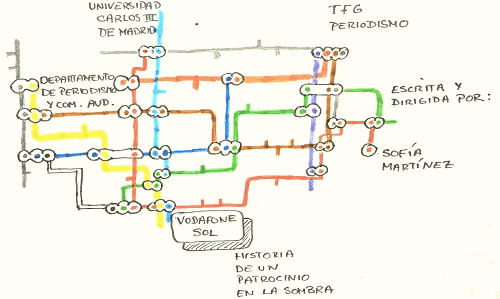 UNIVERSIDAD
CARLOS III
DE MADRID
TFG
PERIODISMO
DEPARTAMENTO
DE PERIODISMO
Y COM. AUD.
ESCRITA Y
DIRIGIDA POR:
SOFÍA
MARTÍNEZ
VODAFONE
SOL
HISTORIA
DE UN
PATROCINIO
EN LA SOMBRA